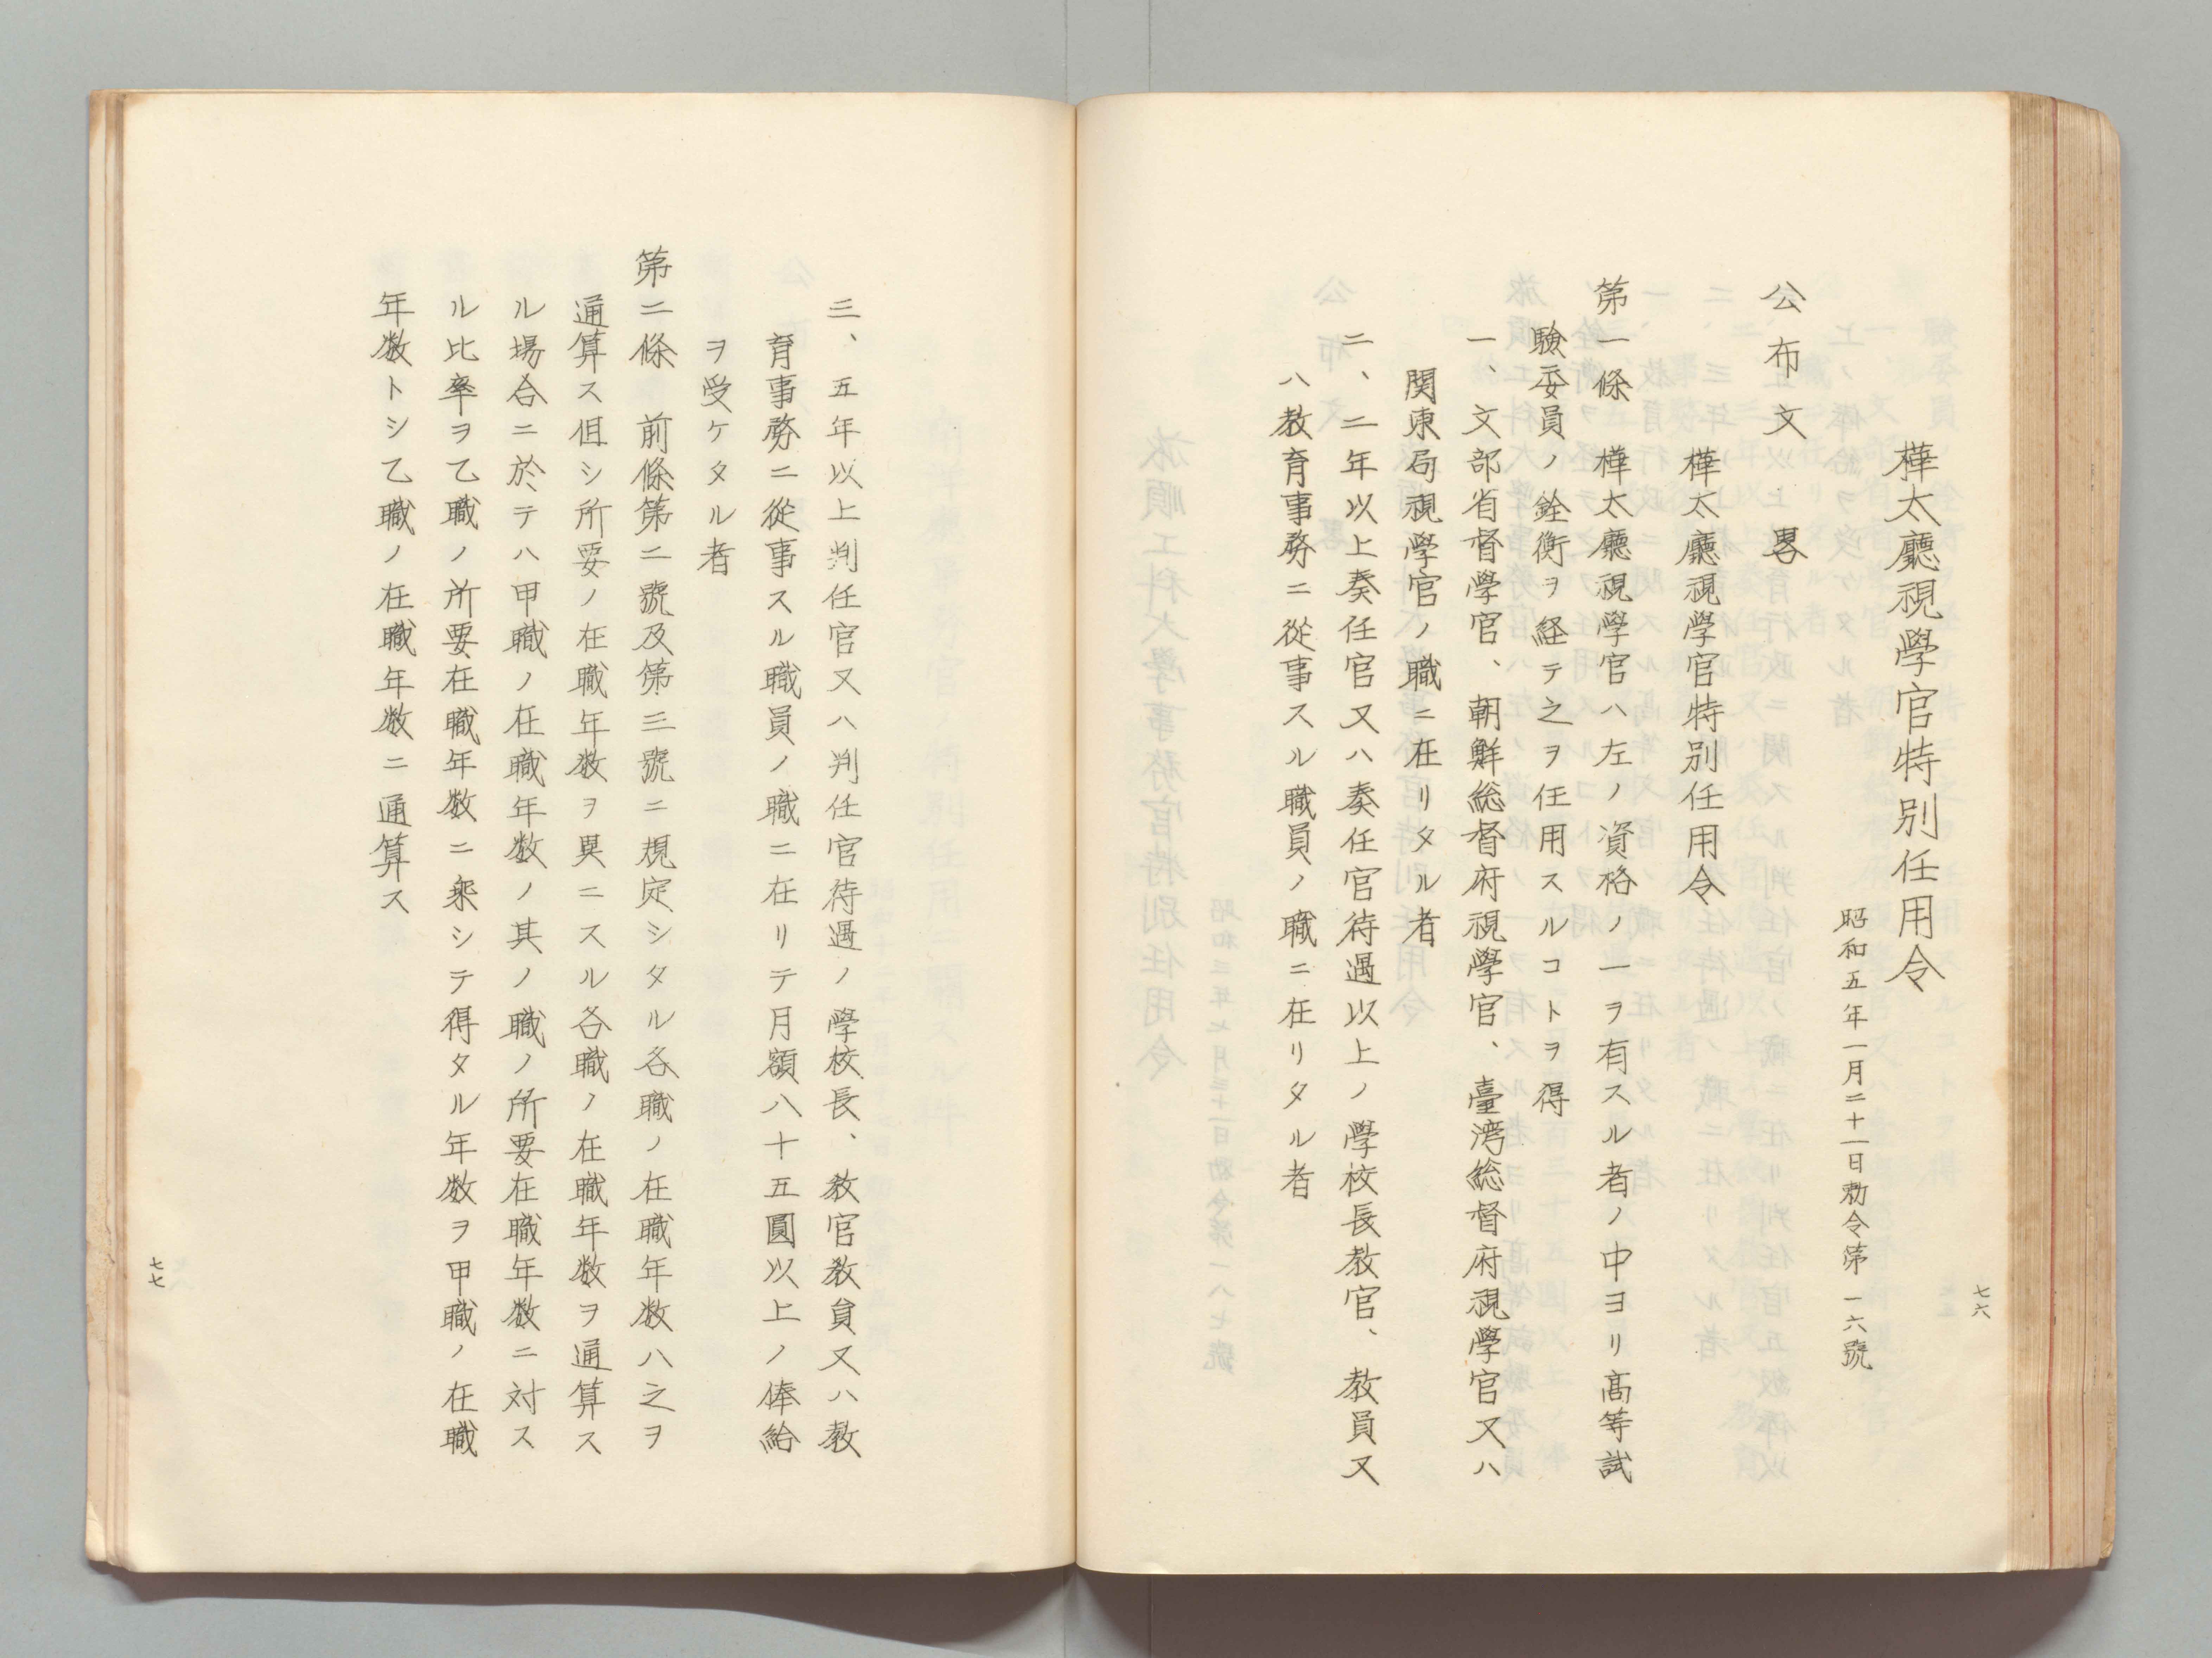 七六
樺太廳視學官特別任用令
昭和五年一月二十一日勅令第一六號
公布文 畧
樺太廳視学官特別任用令
第一條 樺太廳視学官ハ左ノ資格ノ一ヲ有スル者ノ中ヨリ高等試
驗委員ノ銓衡ヲ経テ之ヲ任用スルコトヲ得
一、文部省督学官、朝鮮総督府視学官、臺湾総督府視学官又ハ
関東局視学官ノ職ニ在リタル者
二、二年以上奏任官又ハ奏任官待遇以上ノ學校長教官、教員又
ハ教育事務ニ從事スル職員ノ職ニ在リタル者
三、五年以上判任官又ハ判任官待遇ノ學校長、教官教員又ハ教
育事務ニ從事スル職員ノ職ニ在リテ月額八十五圓以上ノ俸給
ヲ受ケタル者
第二條 前條第二號及第三號ニ規定シタル各職ノ在職年数ハ之ヲ
通算ス但シ所要ノ在職年数ヲ異ニスル各職ノ在職年数ヲ通算ス
ル場合ニ於テハ甲職ノ在職年数ノ其ノ職ノ所要在職年数ニ対ス
ル比率ヲ乙職ノ所要在職年数ニ乗シテ得タル年数ヲ甲職ノ在職
年数トシ乙職ノ在職年数ニ通算ス
七七